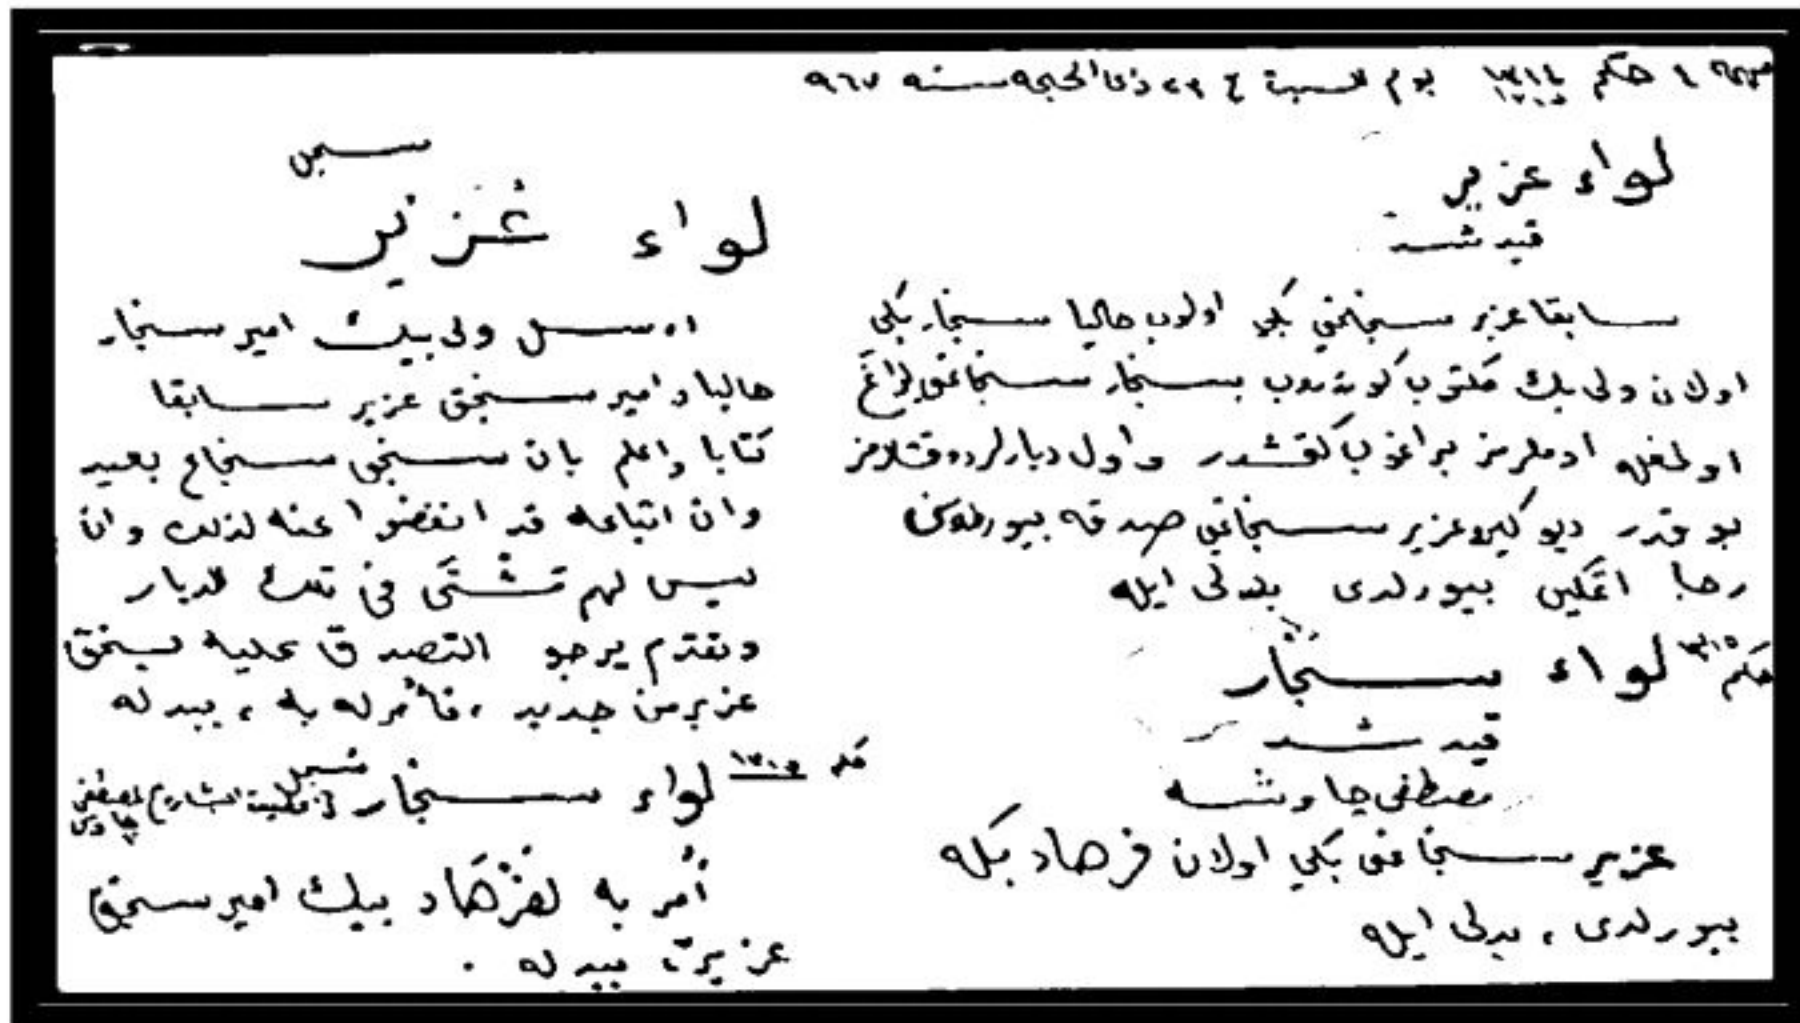 مهمه ٤ حكم ١٣١٤ يوم السبت ٢٣ ذى الحجه سنه ٩٦٧
لواء عزير
قيد شد
سابقا عزير سنجاغى بكى اولوب حاليا سنجار بكى
اولان ولى بك مكتوب كوندروب سنجار سنجاغى ايراغ
اولمغله ادملرمز براغوب كتمشدر واول ديارلرده قشلامز
يوقدر ديو كيرو عزير سنجاغى صدقه بيورلمسن
رجا اتمكين بيورلدى بدلى ايله
حكم ١٣١٥ لواء سنجار
قيد شد
مصطفى چاوشه
عزير سنجاغى بكى اولان فرهاد بكه
بيورلدى ، بدلى ايله
سجل
لواء عُزَير
ارسل ولى بيك امير سنجار
حاليا وامير سنجق عزير سابقا
كتابا واعلم بان سنجق سنجار بعيد
وان اتباعه قد انفضوا عنه لذلك وان
ليس لهم مَشْتَى فى تلك الديار
وتقدم يرجو التصدق عليه بسنجق
عزير من جديد ، فأُمر له به ، ببدله
حكم ١٣١٥ لواء سنجار سجل مصطفى
چاوش
أُمر به لفَرْهَاد بيك امير سنجق
عزير ، ببدله .